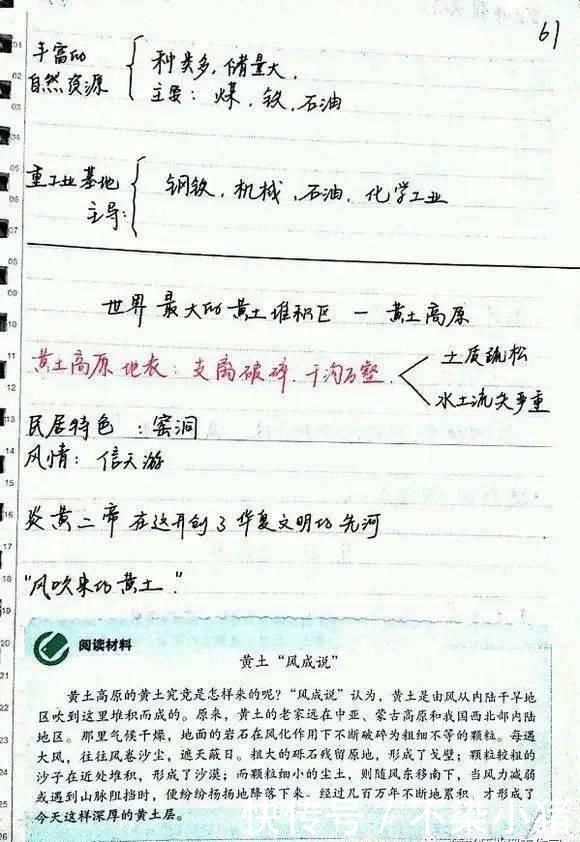 61
丰富的
自然资源
种类多，储量大，
主要：煤，铁，石油
重工业基地
主导：
钢铁，机械，石油，化学工业
世界最大的黄土堆积区 — 黄土高原
黄土高原地表：支离破碎，千沟万壑
土质疏松
水土流失严重
民居特色：窑洞
风情：信天游
炎黄二帝在这开创了华夏文明的先河
"风吹来的黄土"
阅读材料
黄土“风成说”
黄土高原的黄土究竟是怎样来的呢？“风成说”认为，黄土是由风从内陆干旱地
区吹到这里堆积而成的。原来，黄土的老家远在中亚、蒙古高原和我国西北部内陆
地区。那里气候干燥，地面的岩石在风化作用下不断破碎为粗细不等的颗粒。每遇
大风，往往风卷沙尘，遮天蔽日。粗大的砾石残留原地，形成了戈壁；颗粒较粗的
沙子在近处堆积，形成了沙漠；而颗粒细小的尘土，则随风东移南下，当风力减弱
或遇到山脉阻挡时，便纷纷扬扬地降落下来。经过几百万年不断地累积，才形成了
今天这样深厚的黄土层。